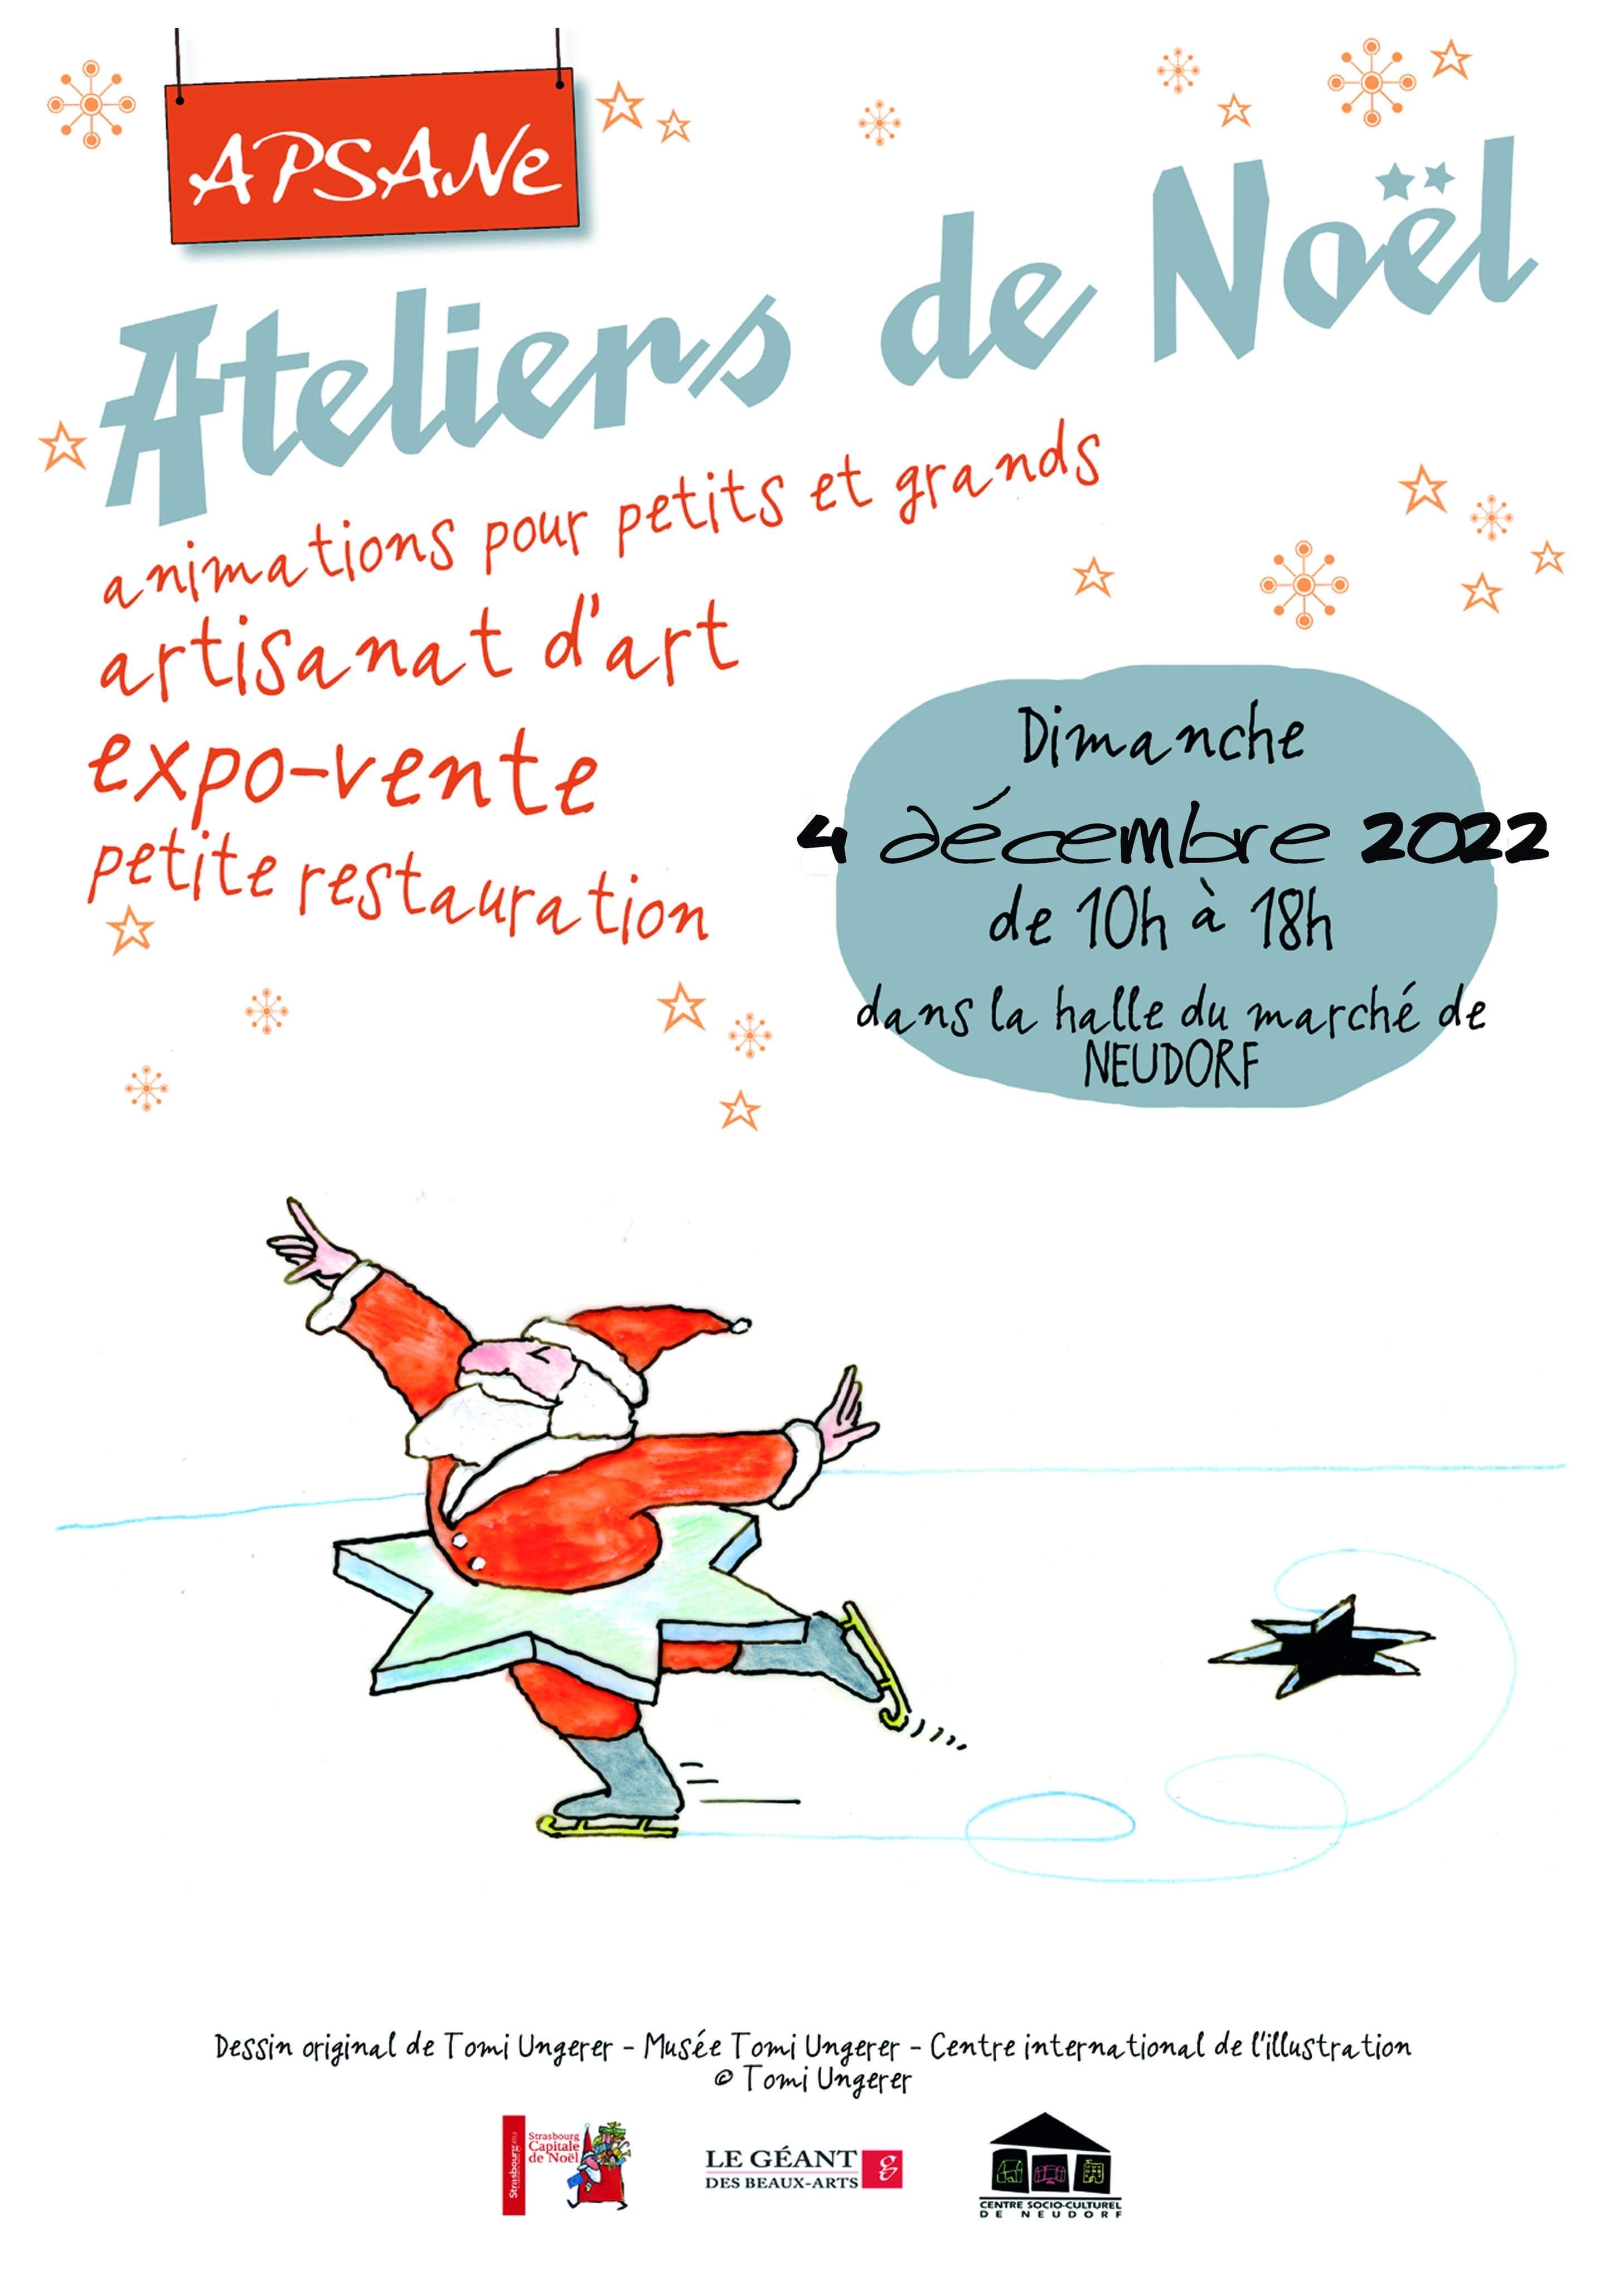 APSANe
Ateliers de Noël
animations pour petits et grands
artisanat d'art
expo-vente
petite restauration
Dimanche
4 décembre 2022
de 10h à 18h
dans la halle du marché de
NEUDORF
Dessin original de Tomi Ungerer - Musée Tomi Ungerer - Centre international de l'illustration
© Tomi Ungerer
Strasbourg.eu
Strasbourg
Capitale
de Noël
LE GÉANT
DES BEAUX-ARTS
CENTRE SOCIO-CULTUREL
DE NEUDORF